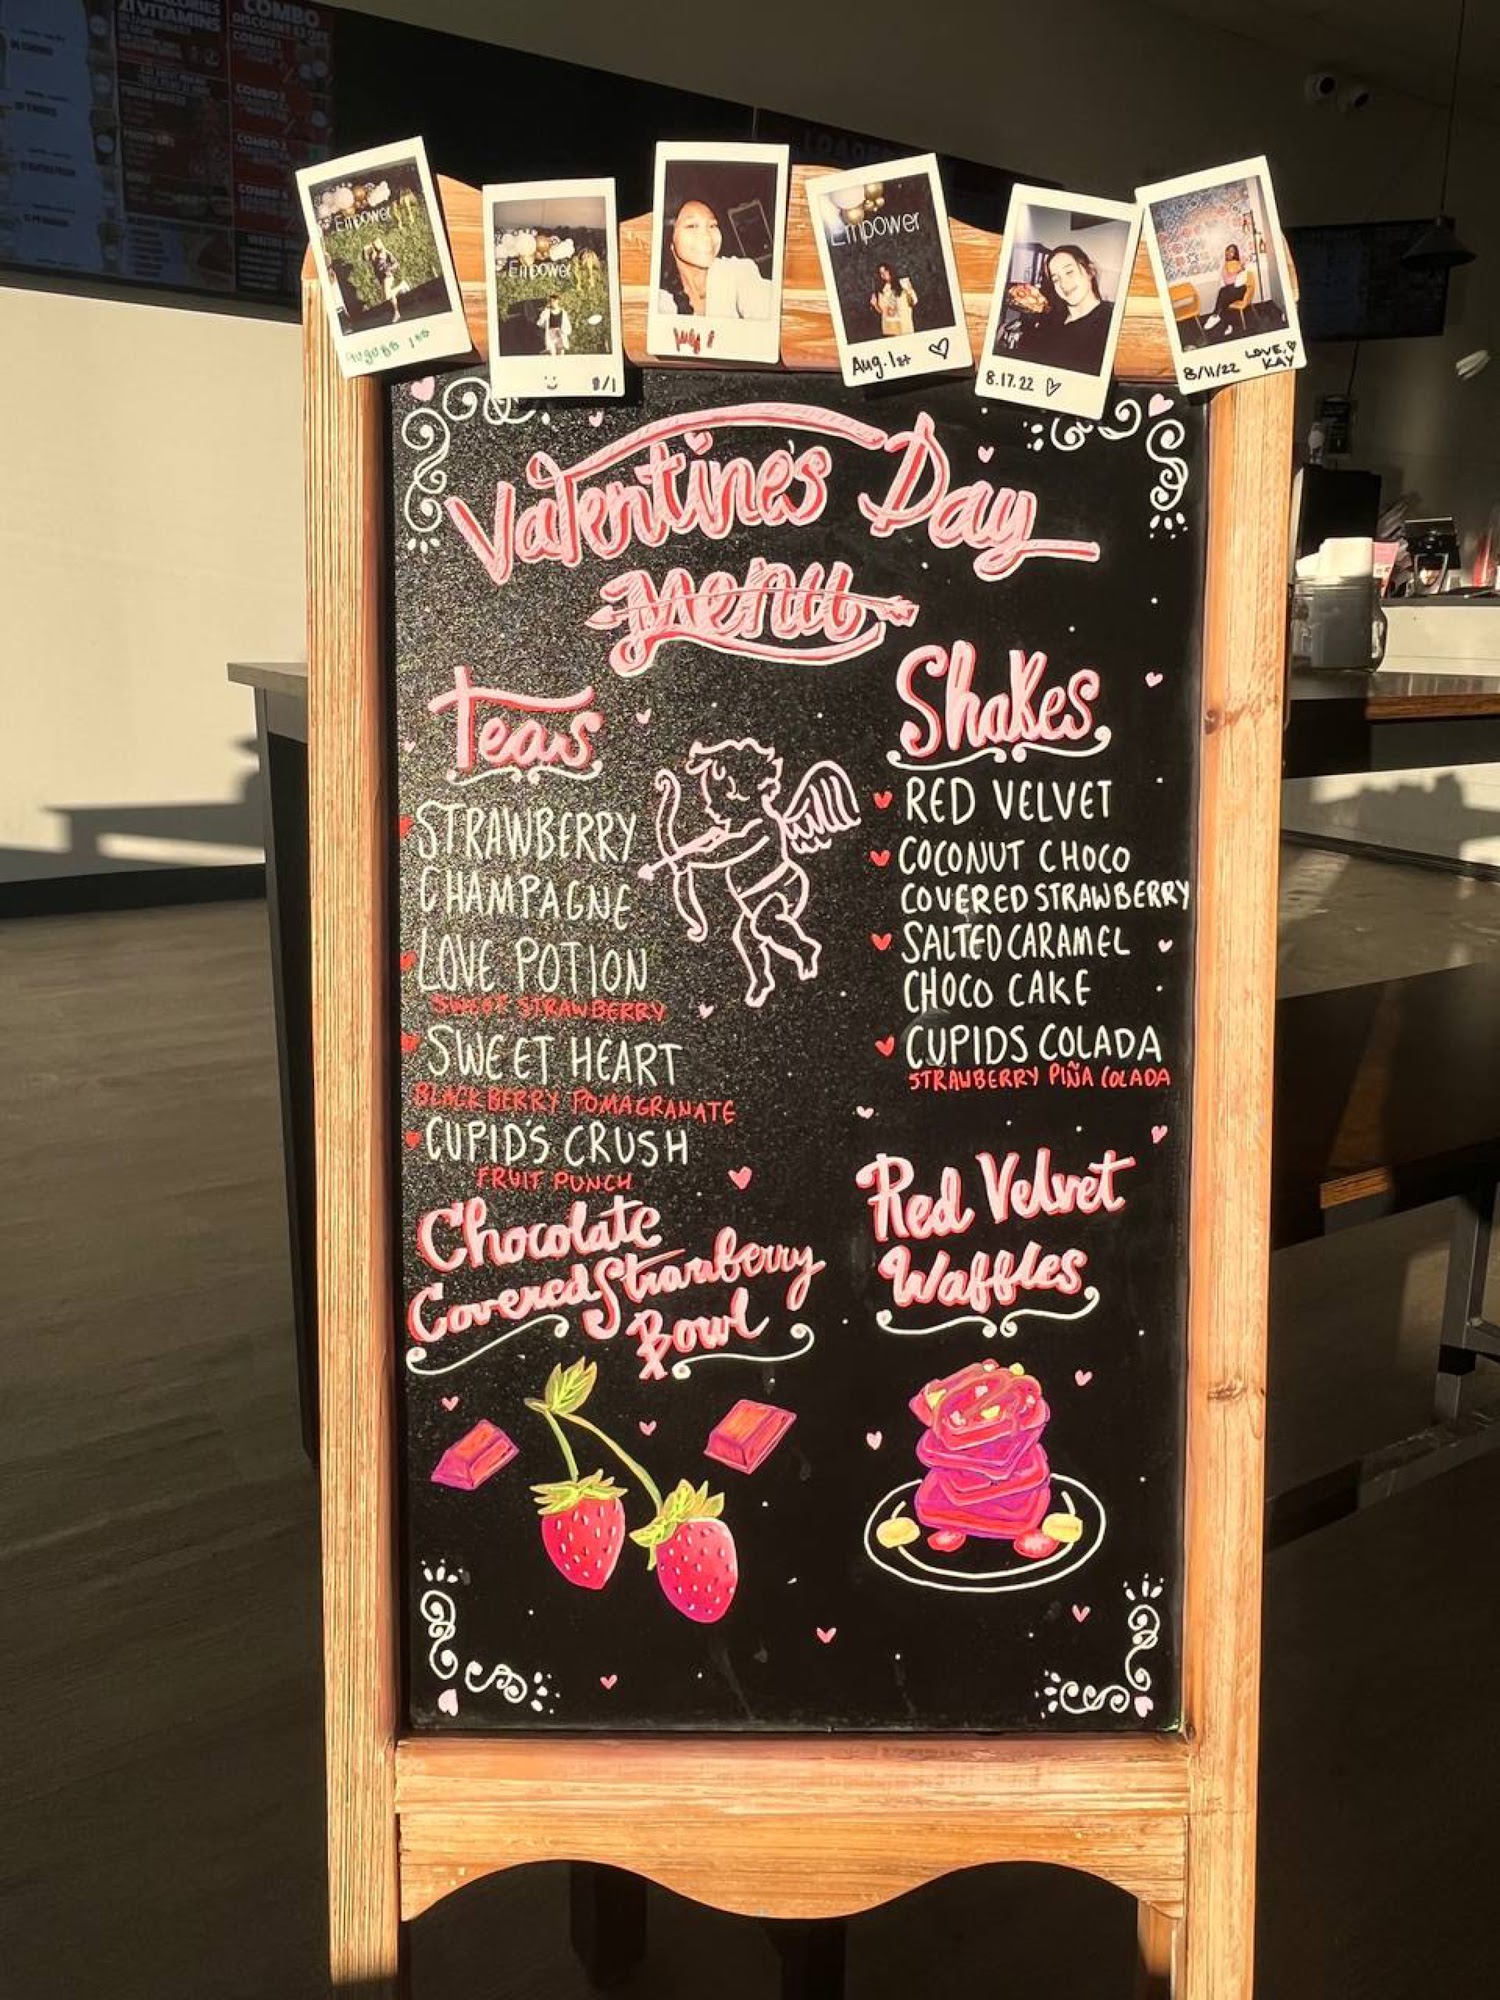 21 VITAMINS
COMBO
DISCOUNT $3 OFF
COMBO 1
COMBO 2
COMBO 3
Empower
Empower
Empower
8/1
Aug. 1st
8.17.22
8/11/22
LOVE,
KAY
Valentine's Day
Menu
Teas
STRAWBERRY
CHAMPAGNE
LOVE POTION
SWEET STRAWBERRY
SWEET HEART
BLACKBERRY POMAGRANATE
CUPID'S CRUSH
FRUIT PUNCH
Chocolate
Covered Strawberry
Bowl
Shakes
RED VELVET
COCONUT CHOCO
COVERED STRAWBERRY
SALTED CARAMEL
CHOCO CAKE
CUPIDS COLADA
STRAWBERRY PIÑA COLADA
Red Velvet
Waffles